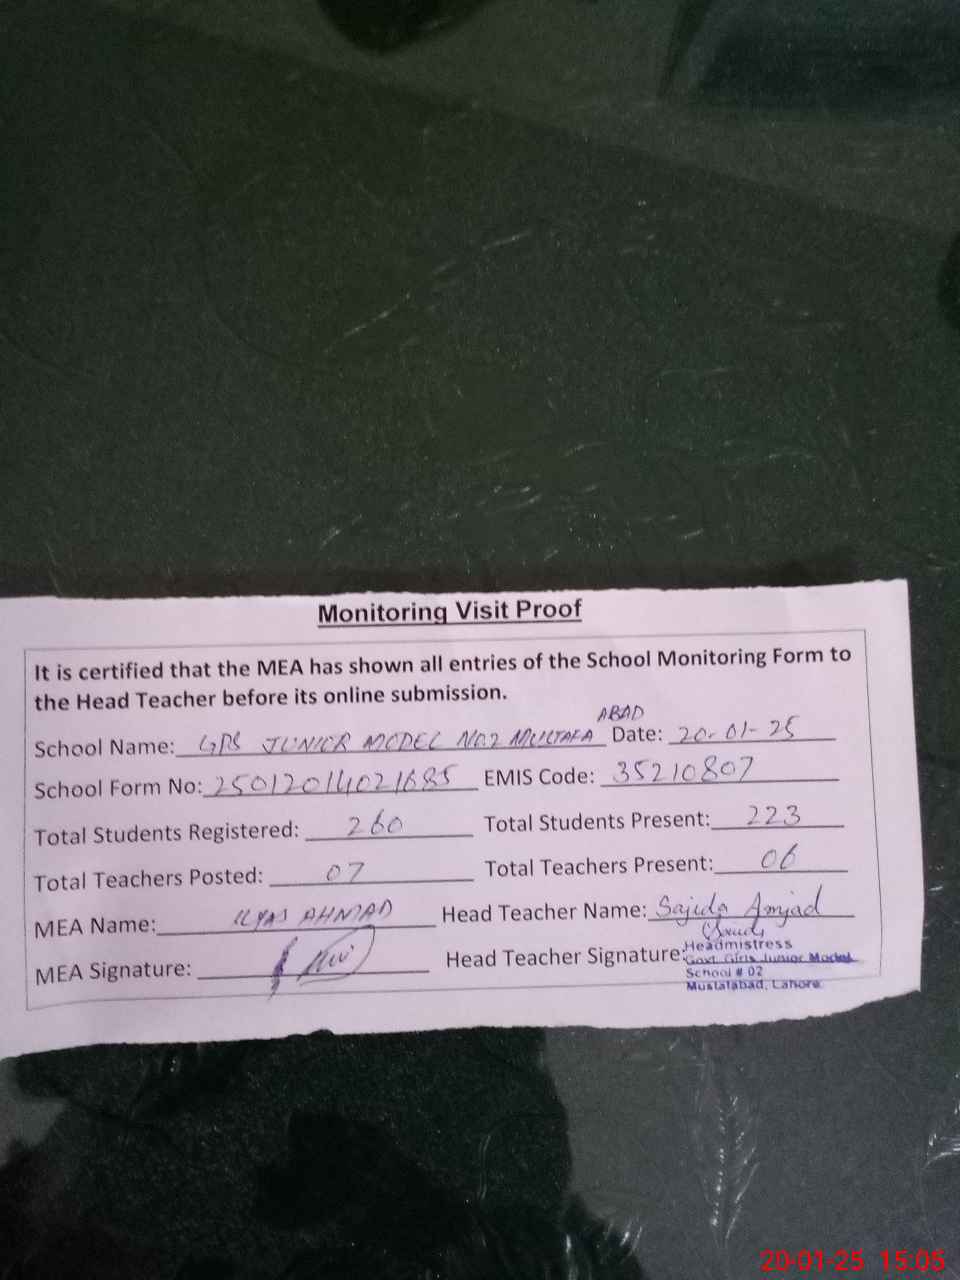 Monitoring Visit Proof
It is certified that the MEA has shown all entries of the School Monitoring Form to
the Head Teacher before its online submission.
School Name: GPS JUNIOR MODEL NO.2 MUSTAFA ABAD Date: 20-01-25
School Form No: 25012014021685 EMIS Code: 35210807
Total Students Registered: 260 Total Students Present: 223
Total Teachers Posted: 07 Total Teachers Present: 06
MEA Name: ILYAS AHMAD Head Teacher Name: Sajida Amjad
MEA Signature: Head Teacher Signature:
Headmistress
Govt. Girls Junior Model
School # 02
Mustafabad, Lahore.
20-01-25 15:05